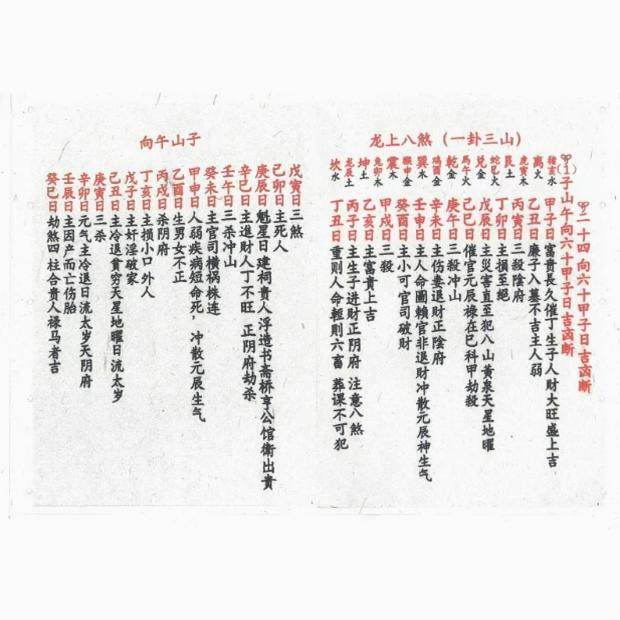 龙上八煞（一卦三山）
二十四向六十甲子日吉凶断
(1)子山午向六十甲子日吉凶断
猪亥水
离火
虎寅木
艮土
蛇巳火
兑金
马午火
乾金
鸡酉金
巽木
猴申金
震木
兔卯木
坤土
龙辰土
坎水
甲子日富貴長久催丁生子人财大旺盛上吉
乙丑日廉子入墓不吉主人弱
丙寅日三殺陰府
丁卯日主損至絕
戊辰日主災害直至犯八山黄泉天星地曜
己巳日催官元辰禄在巳科甲劫殺
庚午日三殺冲山
辛未日主伤妻退財正陰府
壬申日主人命圖賴官非退財冲散元辰神生气
癸酉日主小可官司破财
甲戌日三殺
乙亥日主富貴上吉
丙子日主生子进财正阴府 注意八煞
丁丑日重则人命輕則六畜 葬课不可犯
子山午向
戊寅日三煞
己卯日主死人
庚辰日魁星日建祠貴人浮造书斋桥亨公馆衛出贵
辛巳日主進財人丁不旺 正阴府劫杀
壬午日三杀冲山
癸未日主官司横祸株连
甲申日人弱疾病短命死，冲散元辰生气
乙酉日生男女不正
丙戌日杀阴府
丁亥日主损小口外人
戊子日主奸淫破家
己丑日主冷退貧穷天星地曜日流太岁
庚寅日三杀
辛卯日元气主冷退日流太岁天阴府
壬辰日主因产而亡伤胎
癸巳日劫煞四柱合贵人禄马者吉